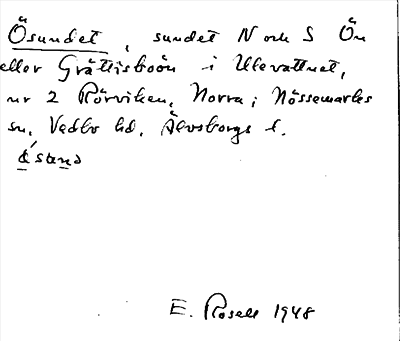 Ösundet, sundet N och S Ön
eller Grättisboön i Ulevattnet,
nr 2 Rörviken, Norra, i Nössemarks
sn, Vedbo hd, Älvsborgs l.
E. Rosell 1948